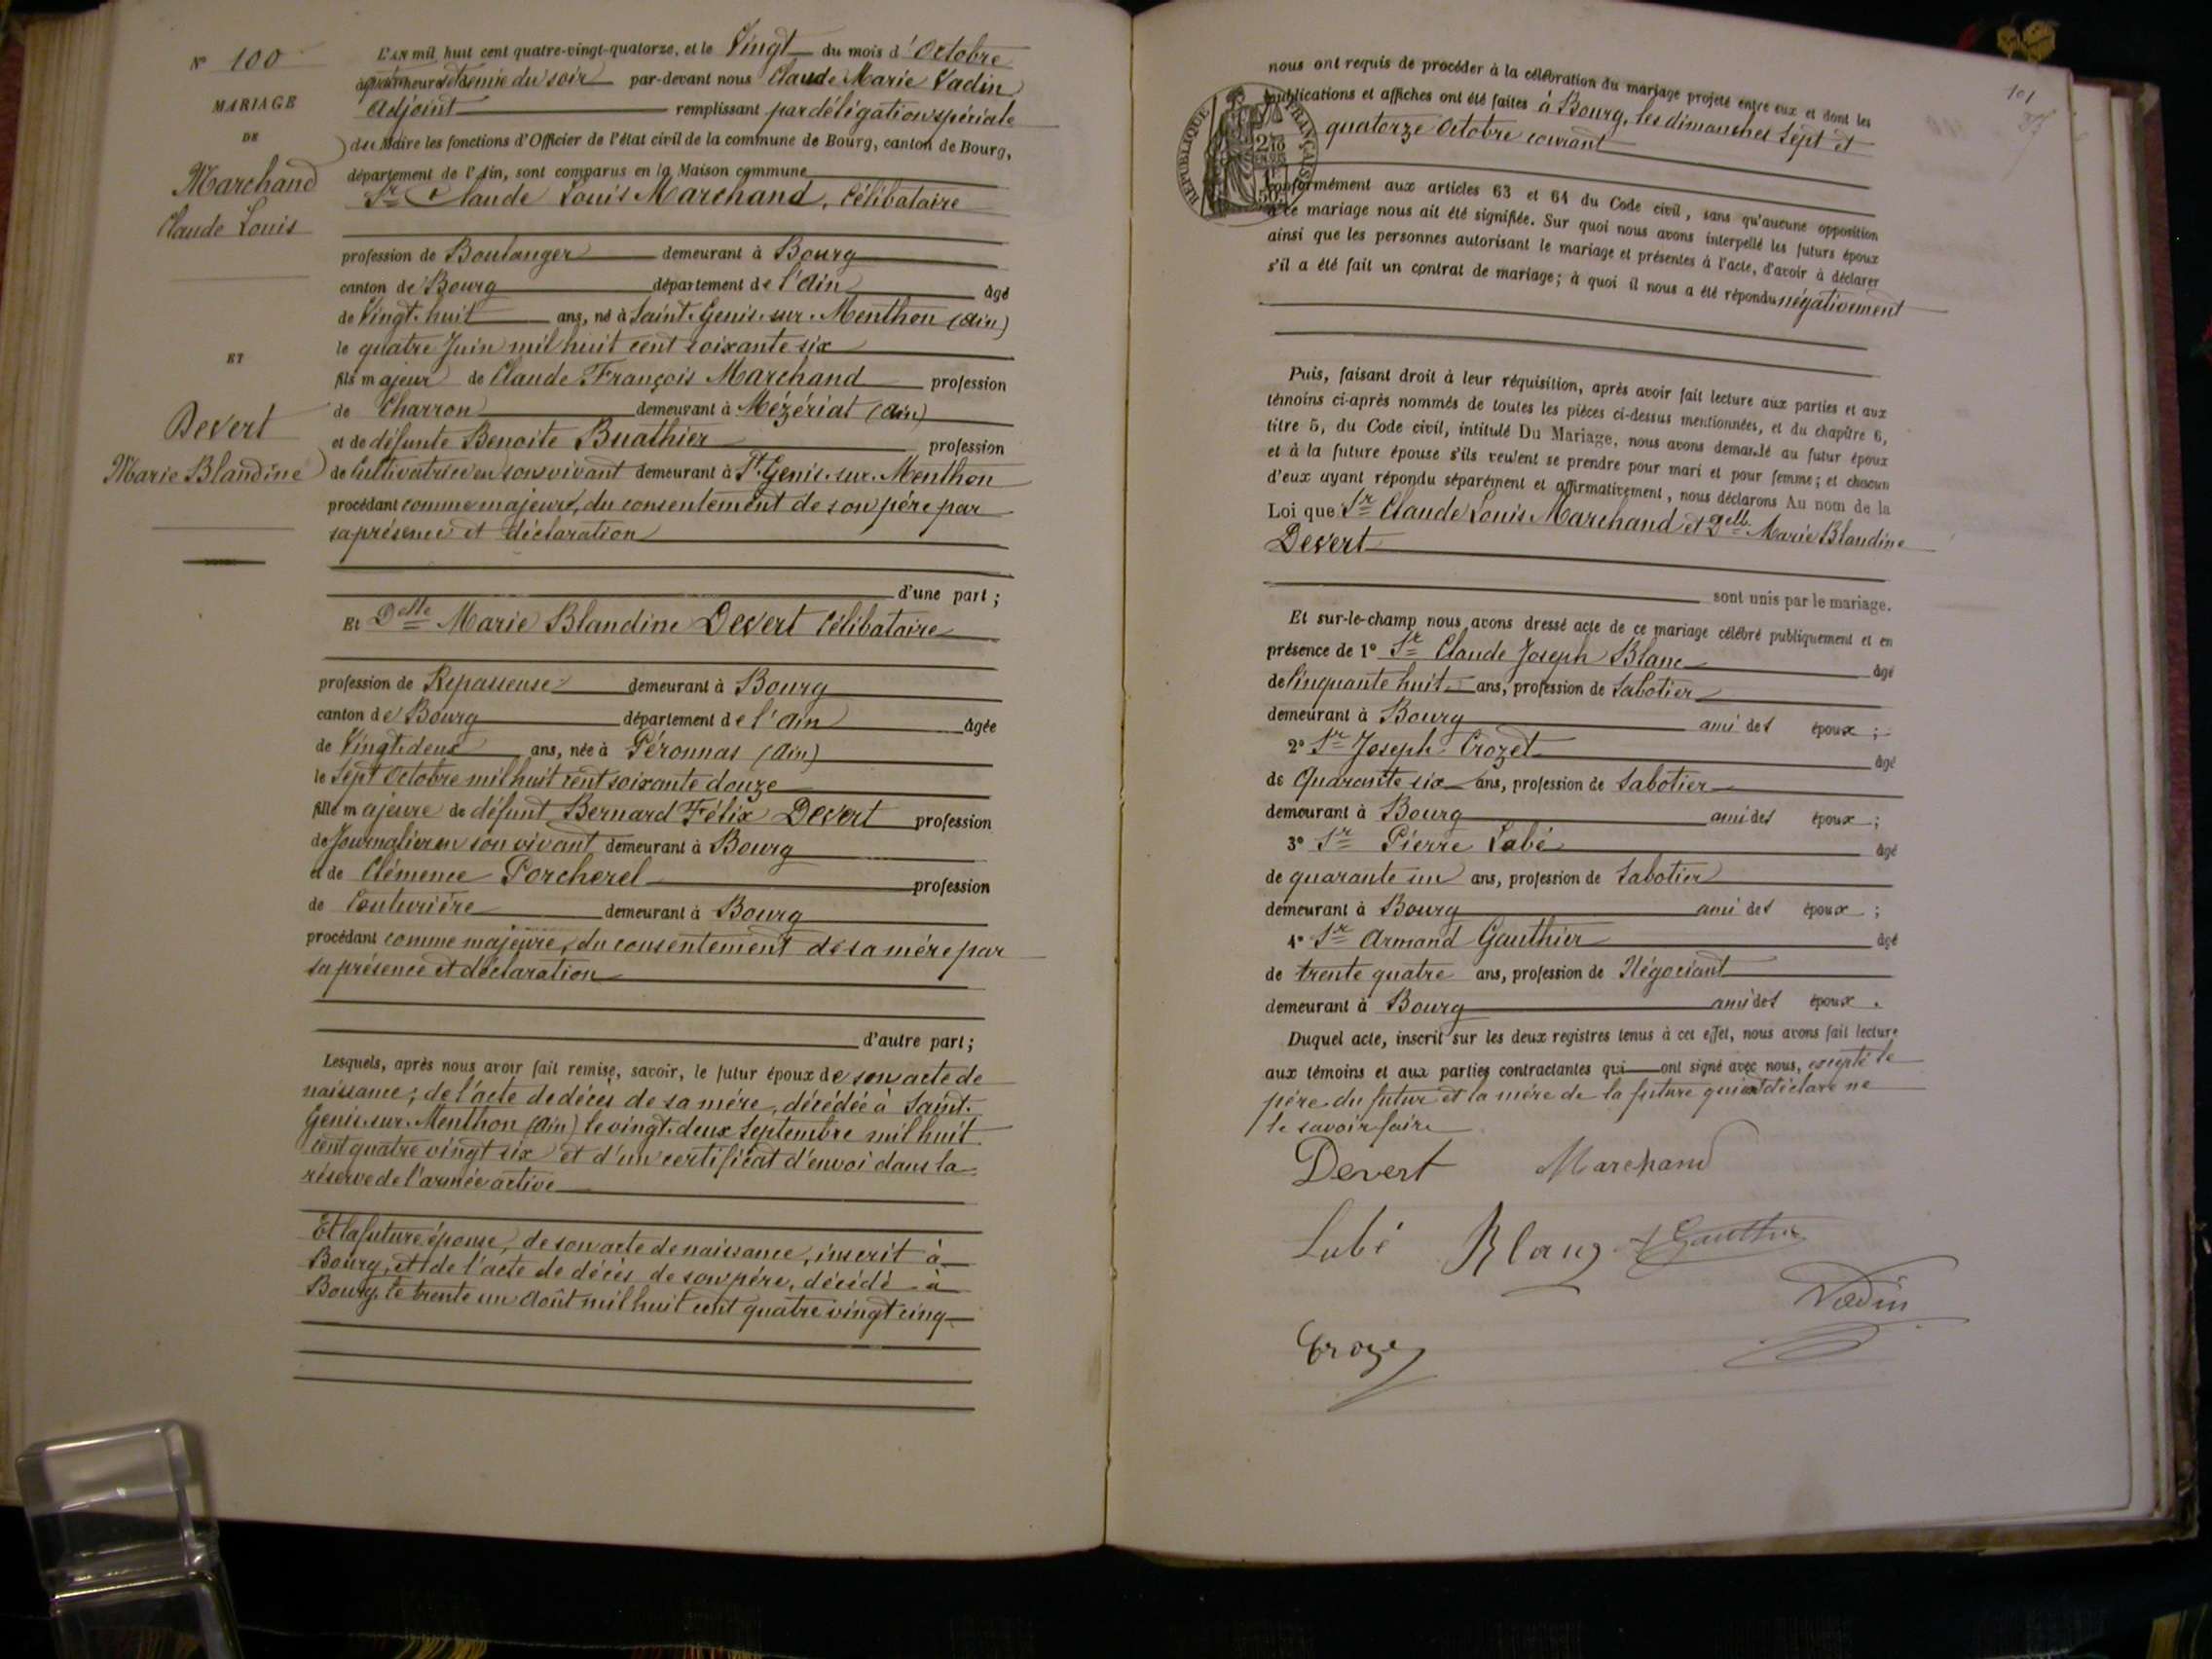 N° 100
MARIAGE
DE
Marchand
Claude Louis
ET
Devert
Marie Blandine
L'AN mil huit cent quatre-vingt-quatorze, et le Vingt du mois d'Octobre
à quatre heures et demie du soir par-devant nous Claude Marie Vadin
Adjoint remplissant par délégation spéciale
du Maire les fonctions d'Officier de l'état civil de la commune de Bourg, canton de Bourg,
département de l'Ain, sont comparus en la Maison commune
Sr Claude Louis Marchand, Célibataire
profession de Boulanger demeurant à Bourg
canton de Bourg département de l'Ain âgé
de Vingt-huit ans, né à Saint-Genis-sur-Menthon (Ain)
le quatre Juin mil huit cent soixante six
fils majeur de Claude François Marchand profession
de Charron demeurant à Mézériat (Ain)
et de défunte Benoite Buathier profession
de Cultivatrice en son vivant demeurant à St Genis-sur-Menthon
procédant comme majeur, du consentement de son père par
sa présence et déclaration
d'une part;
Et Delle Marie Blandine Devert Célibataire
profession de Repasseuse demeurant à Bourg
canton de Bourg département de l'Ain âgée
de Vingt-deux ans, née à Péronnas (Ain)
le Sept Octobre mil huit cent soixante douze
fille majeure de défunt Bernard Félix Devert profession
de Journalier en son vivant demeurant à Bourg
et de Clémence Porcherel profession
de Couturière demeurant à Bourg
procédant comme majeure, du consentement de sa mère par
sa présence et déclaration
d'autre part;
Lesquels, après nous avoir fait remise, savoir, le futur époux de son acte de
naissance; de l'acte de décès de sa mère, décédée à Saint-
Genis-sur-Menthon (Ain) le vingt-deux Septembre mil huit
cent quatre vingt six et d'un certificat d'envoi dans la
réserve de l'armée active
Et la future épouse, de son acte de naissance, inscrit à
Bourg, et de l'acte de décès de son père, décédé à
Bourg, le trente un Août mil huit cent quatre vingt cinq
101
nous ont requis de procéder à la célébration du mariage projeté entre eux et dont les
publications et affiches ont été faites à Bourg, les dimanches Sept et
quatorze Octobre courant
RÉPUBLIQUE FRANÇAISE
conformément aux articles 63 et 64 du Code civil, sans qu'aucune opposition
à ce mariage nous ait été signifiée. Sur quoi nous avons interpellé les futurs époux
ainsi que les personnes autorisant le mariage et présentes à l'acte, d'avoir à déclarer
s'il a été fait un contrat de mariage; à quoi il nous a été répondu négativement
Puis, faisant droit à leur réquisition, après avoir fait lecture aux parties et aux
témoins ci-après nommés de toutes les pièces ci-dessus mentionnées, et du chapitre 6,
titre 5, du Code civil, intitulé Du Mariage, nous avons demandé au futur époux
et à la future épouse s'ils veulent se prendre pour mari et pour femme; et chacun
d'eux ayant répondu séparément et affirmativement, nous déclarons Au nom de la
Loi que Sr Claude Louis Marchand et Delle Marie Blandine
Devert
sont unis par le mariage.
Et sur-le-champ nous avons dressé acte de ce mariage célébré publiquement et en
présence de 1° Sr Claude Joseph Blanc âgé
de Cinquante huit ans, profession de Sabotier
demeurant à Bourg ami des époux;
2° Sr Joseph Crozet âgé
de Quarante six ans, profession de Sabotier
demeurant à Bourg ami des époux;
3° Sr Pierre Labé âgé
de quarante un ans, profession de Sabotier
demeurant à Bourg ami des époux;
4° Sr Armand Gauthier âgé
de trente quatre ans, profession de Négociant
demeurant à Bourg ami des époux.
Duquel acte, inscrit sur les deux registres tenus à cet effet, nous avons fait lecture
aux témoins et aux parties contractantes qui ont signé avec nous, excepté le
père du futur et la mère de la future qui ont déclaré ne
le savoir faire
Devert Marchand
Labé Blanc Gauthier
Vadin
Croze